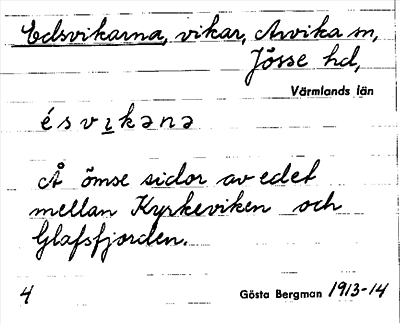 Edsvikarna, vikar, Arvika sn,
Jösse hd,
Värmlands län
é s v ı k ə n ə
Å ömse sidor av edet
mellan Kyrkeviken och
Glafsfjorden.
4 Gösta Bergman 1913-14